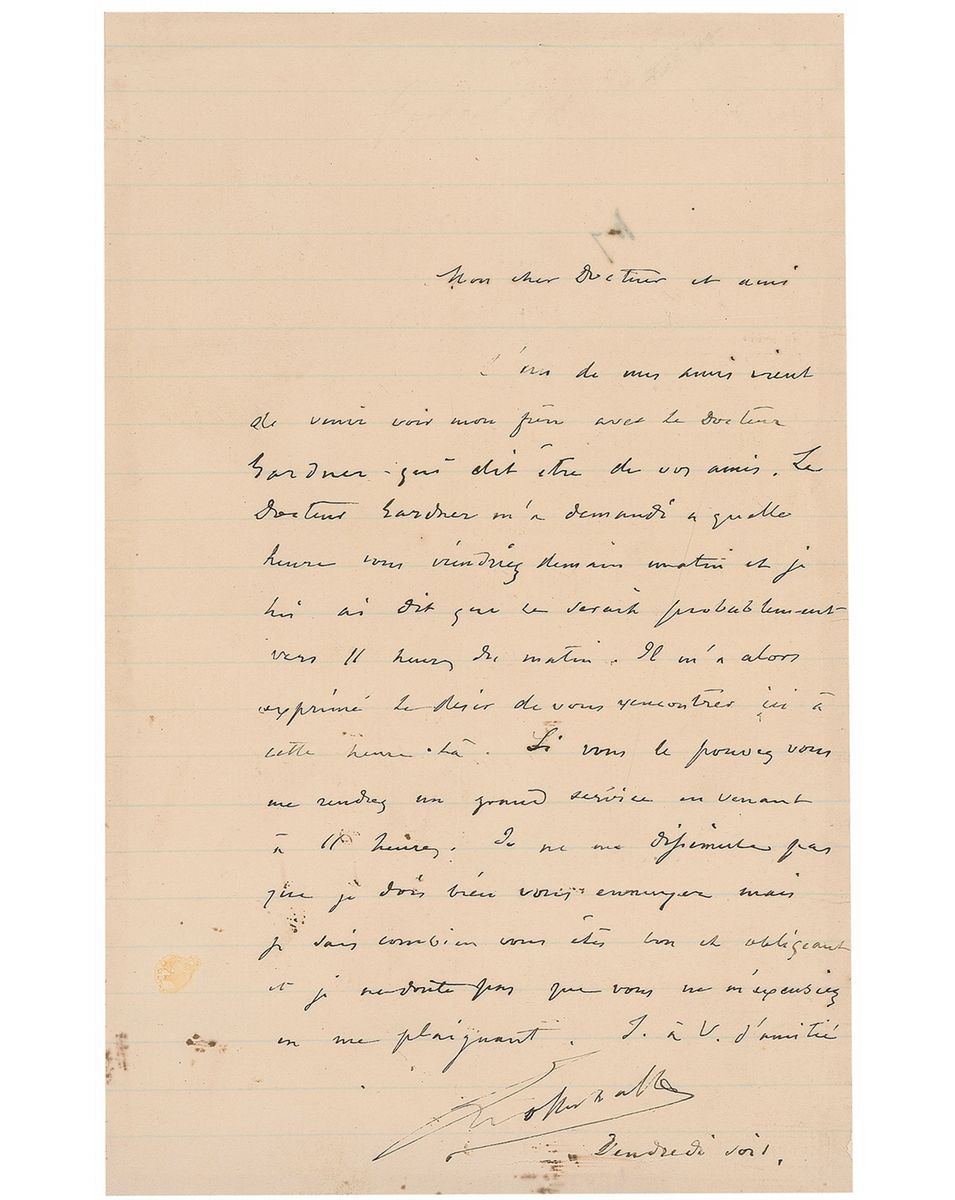 Mon cher Docteur et ami
L'un de mes amis vient
de venir voir mon frère avec le Docteur
Gardner - qui dit être de vos amis. Le
Docteur Gardner m'a demandé a quelle
heure vous viendriez demain matin et je
lui ai dit que ce serait probablement
vers 11 heures du matin. Il m'a alors
exprimé le désir de vous rencontrer ici à
cette heure-là. Si vous le pouvez vous
me rendrez un grand service en venant
à 11 heures. Je ne me dissimule pas
que je dois bien vous ennuyer mais
je sais combien vous êtes bon et obligeant
et je ne doute pas que vous ne m'excusiez
en me plaignant. T. à V. d'amitié
Vendredi soir.